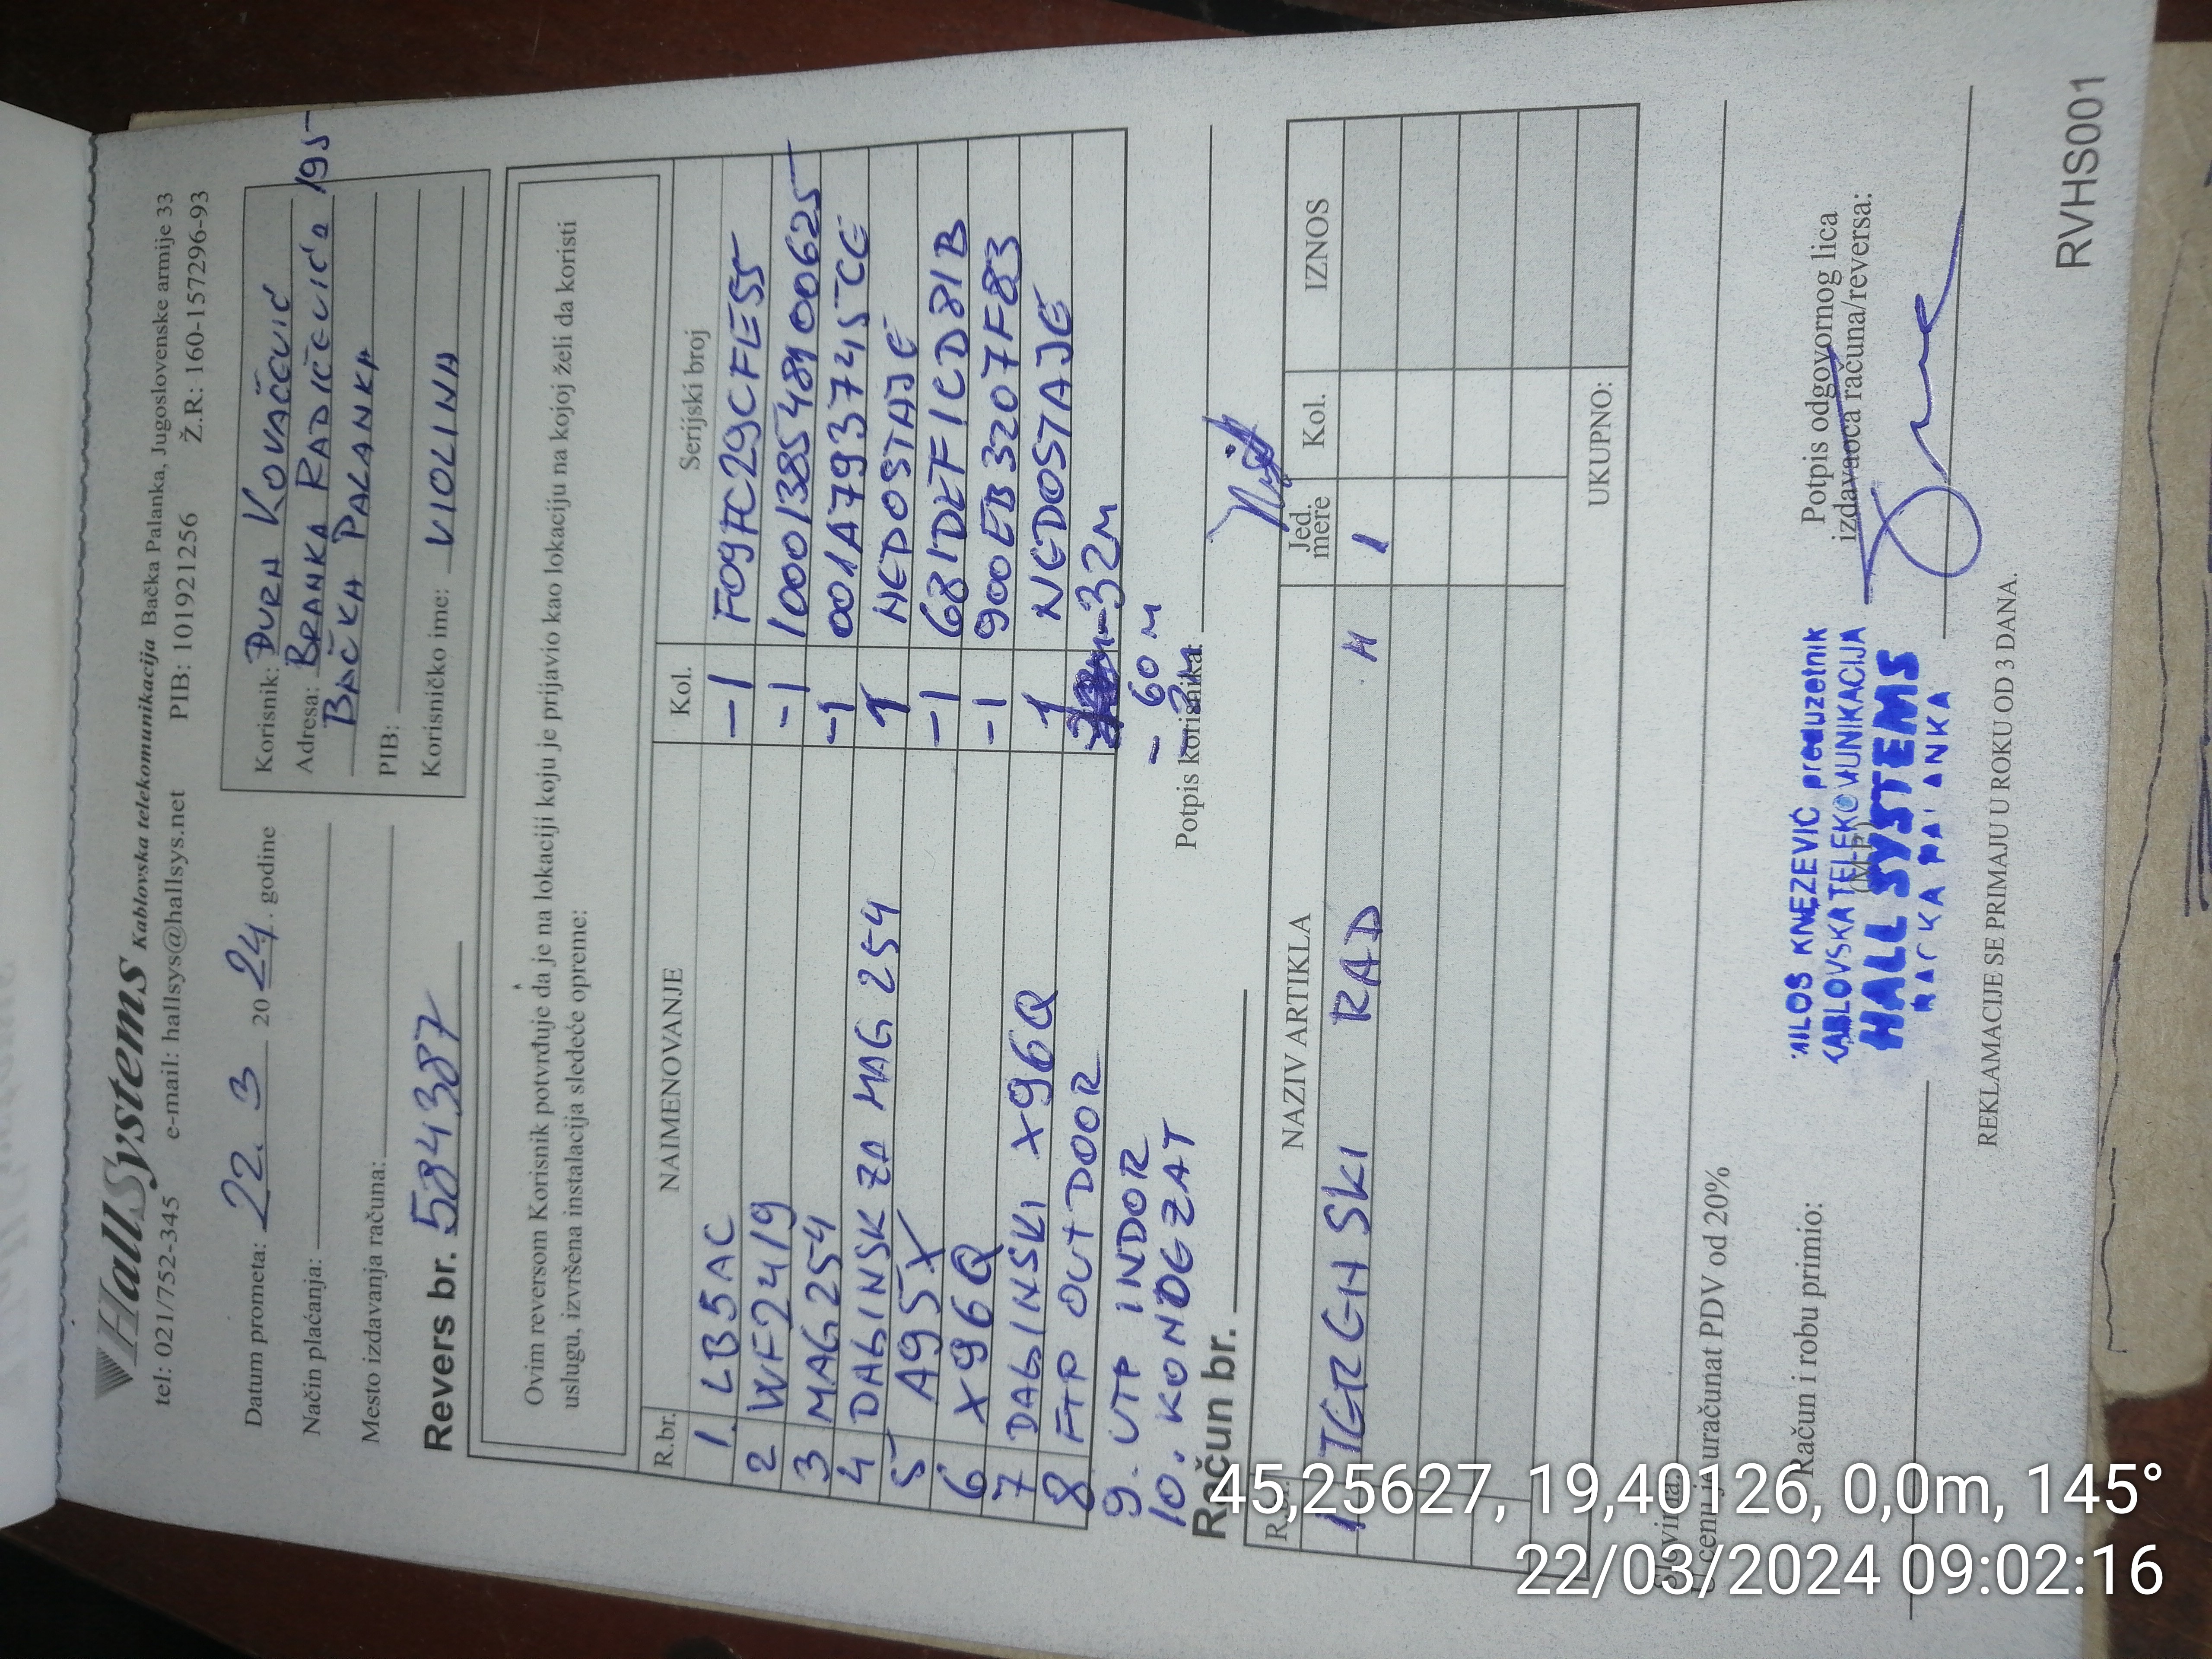 HallSystems Kablovska telekomunikacija Bačka Palanka, Jugoslovenske armije 33
tel: 021/752-345 e-mail: hallsys@hallsys.net PIB: 101921256 Ž.R.: 160-157296-93
Datum prometa: 22. 3 2024. godine
Način plaćanja:
Mesto izdavanja računa:
Revers br. 584387
Korisnik: ĐURA KOVAČEVIĆ
Adresa: BRANKA RADIČEVIĆA 195
BAČKA PALANKA
PIB:
Korisničko ime: VIOLINA
Ovim reversom Korisnik potvrđuje da je na lokaciji koju je prijavio kao lokaciju na kojoj želi da koristi
uslugu, izvršena instalacija sledeće opreme:
R.br. NAIMENOVANJE Kol. Serijski broj
1. LB5AC -1 F09FC29CFE55
2 WF2419 -1 1000138548900625
3 MAG254 -1 001A793745CE
4 DALINSK ZA MAG 254 1 NEDOSTAJE
5 A95X -1 681DEF1CD81B
6 X96Q -1 900EB3207F83
7 DALINSKI X96Q 1 NEDOSTAJE
8 FTP OUTDOOR -32M
9. UTP INDOR - 60 M
10. KONOGZAT
Potpis korisnika:
Račun br.
NAZIV ARTIKLA Jed. mere Kol. IZNOS
1 TERENSKI RAD H 1
UKUPNO:
U cenu je uračunat PDV od 20%
Račun i robu primio:
Potpis odgovornog lica
izdavaoca računa/reversa:
(M.P.)
MILOS KNEZEVIĆ preduzetnik
KABLOVSKA TELEKOMUNIKACIJA
HALL SYSTEMS
BACKA PALANKA
REKLAMACIJE SE PRIMAJU U ROKU OD 3 DANA.
RVHS001
45,25627, 19,40126, 0,0m, 145°
22/03/2024 09:02:16